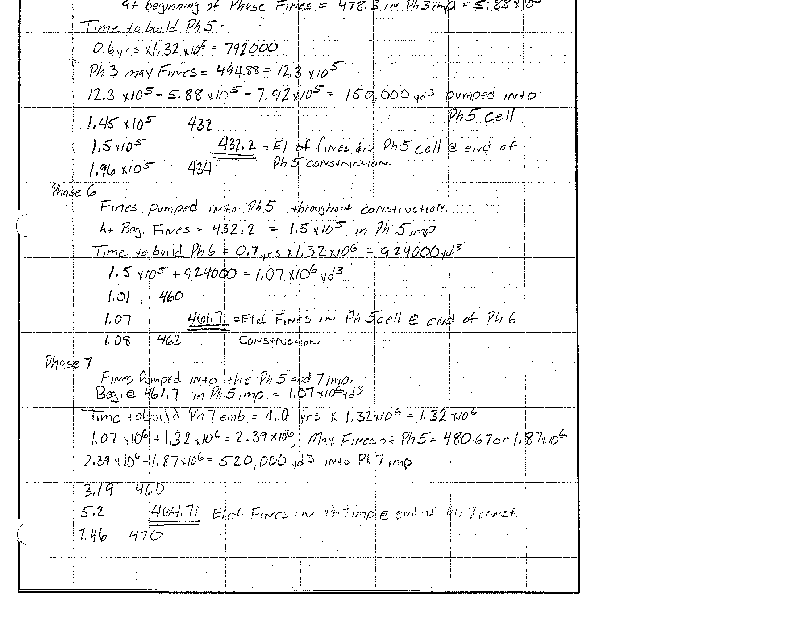 At beginning of Phase Fines = 478.3 in Ph 3 imp = 5.88 x10⁵
Time to build Ph 5 -
0.6 yrs x 1.32 x10⁶ = 792000
Ph 3 max Fines = 494.88 = 12.3 x10⁵
12.3 x10⁵ - 5.88 x10⁵ - 7.92 x10⁵ = 150,000 yd³ pumped into
Ph 5 cell
1.45 x10⁵ 432
1.5 x10⁵ 432.2 = El of fines in Ph 5 cell @ end of
1.96 x10⁵ 434 Ph 5 construction.
Phase 6
Fines pumped into Ph 5 throughout construction
At Beg. Fines = 432.2 = 1.5 x10⁵ in Ph 5 imp
Time to build Ph 6 = 0.7 yrs x 1.32 x10⁶ = 924000 yd³
1.5 x10⁵ + 924000 = 1.07 x10⁶ yd³
1.01 460
1.07 461.7 = El of Fines in Ph 5 cell @ end of Ph 6
1.08 462 Construction
Phase 7
Fines Pumped into the Ph 5 and 7 imp.
Beg @ 461.7 in Ph 5 imp. = 1.07 x10⁶ yd³
Time to build Ph 7 emb = 1.0 yrs x 1.32 x10⁶ = 1.32 x10⁶
1.07 x10⁶ + 1.32 x10⁶ = 2.39 x10⁶, Max Fines Ph 5 = 480.67 or 1.87 x10⁶
2.39 x10⁶ - 1.87 x10⁶ = 520,000 yd³ into Ph 7 imp
3.19 460
5.2 464.71 El of Fines in Ph 7 imp @ end of Ph 7 const.
7.46 470